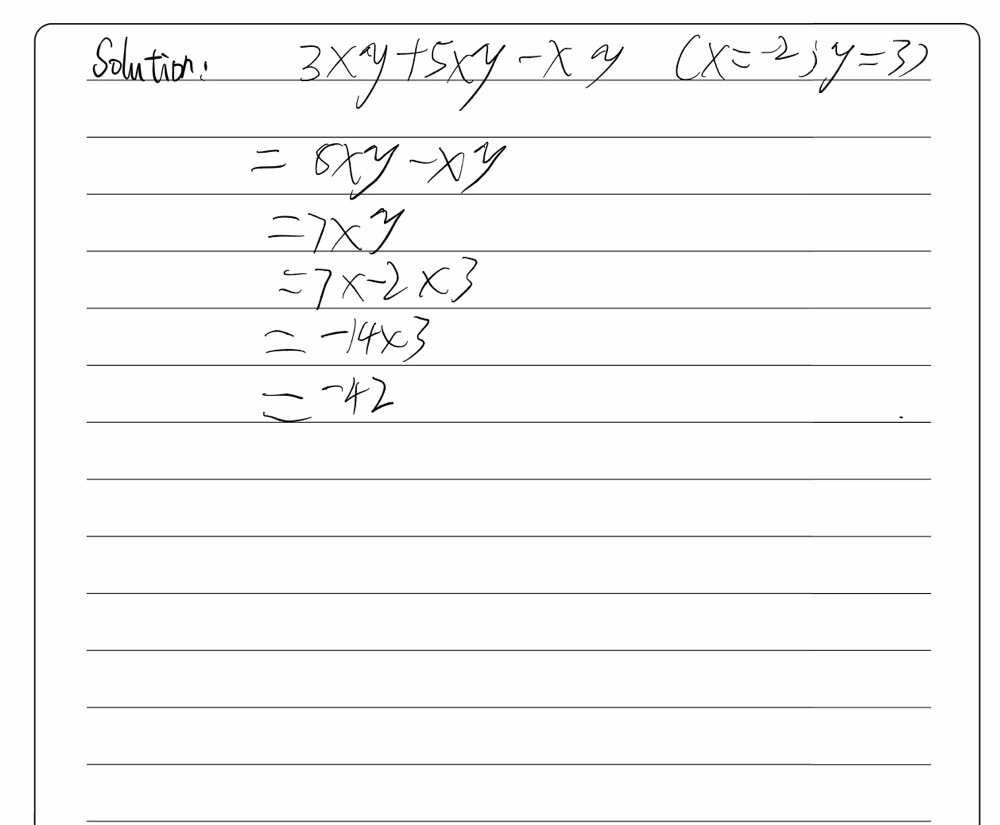 Solution: 3xy+5xy-xy (x=-2; y=3)
= 8xy-xy
=7xy
=7x-2x3
= -14x3
= -42